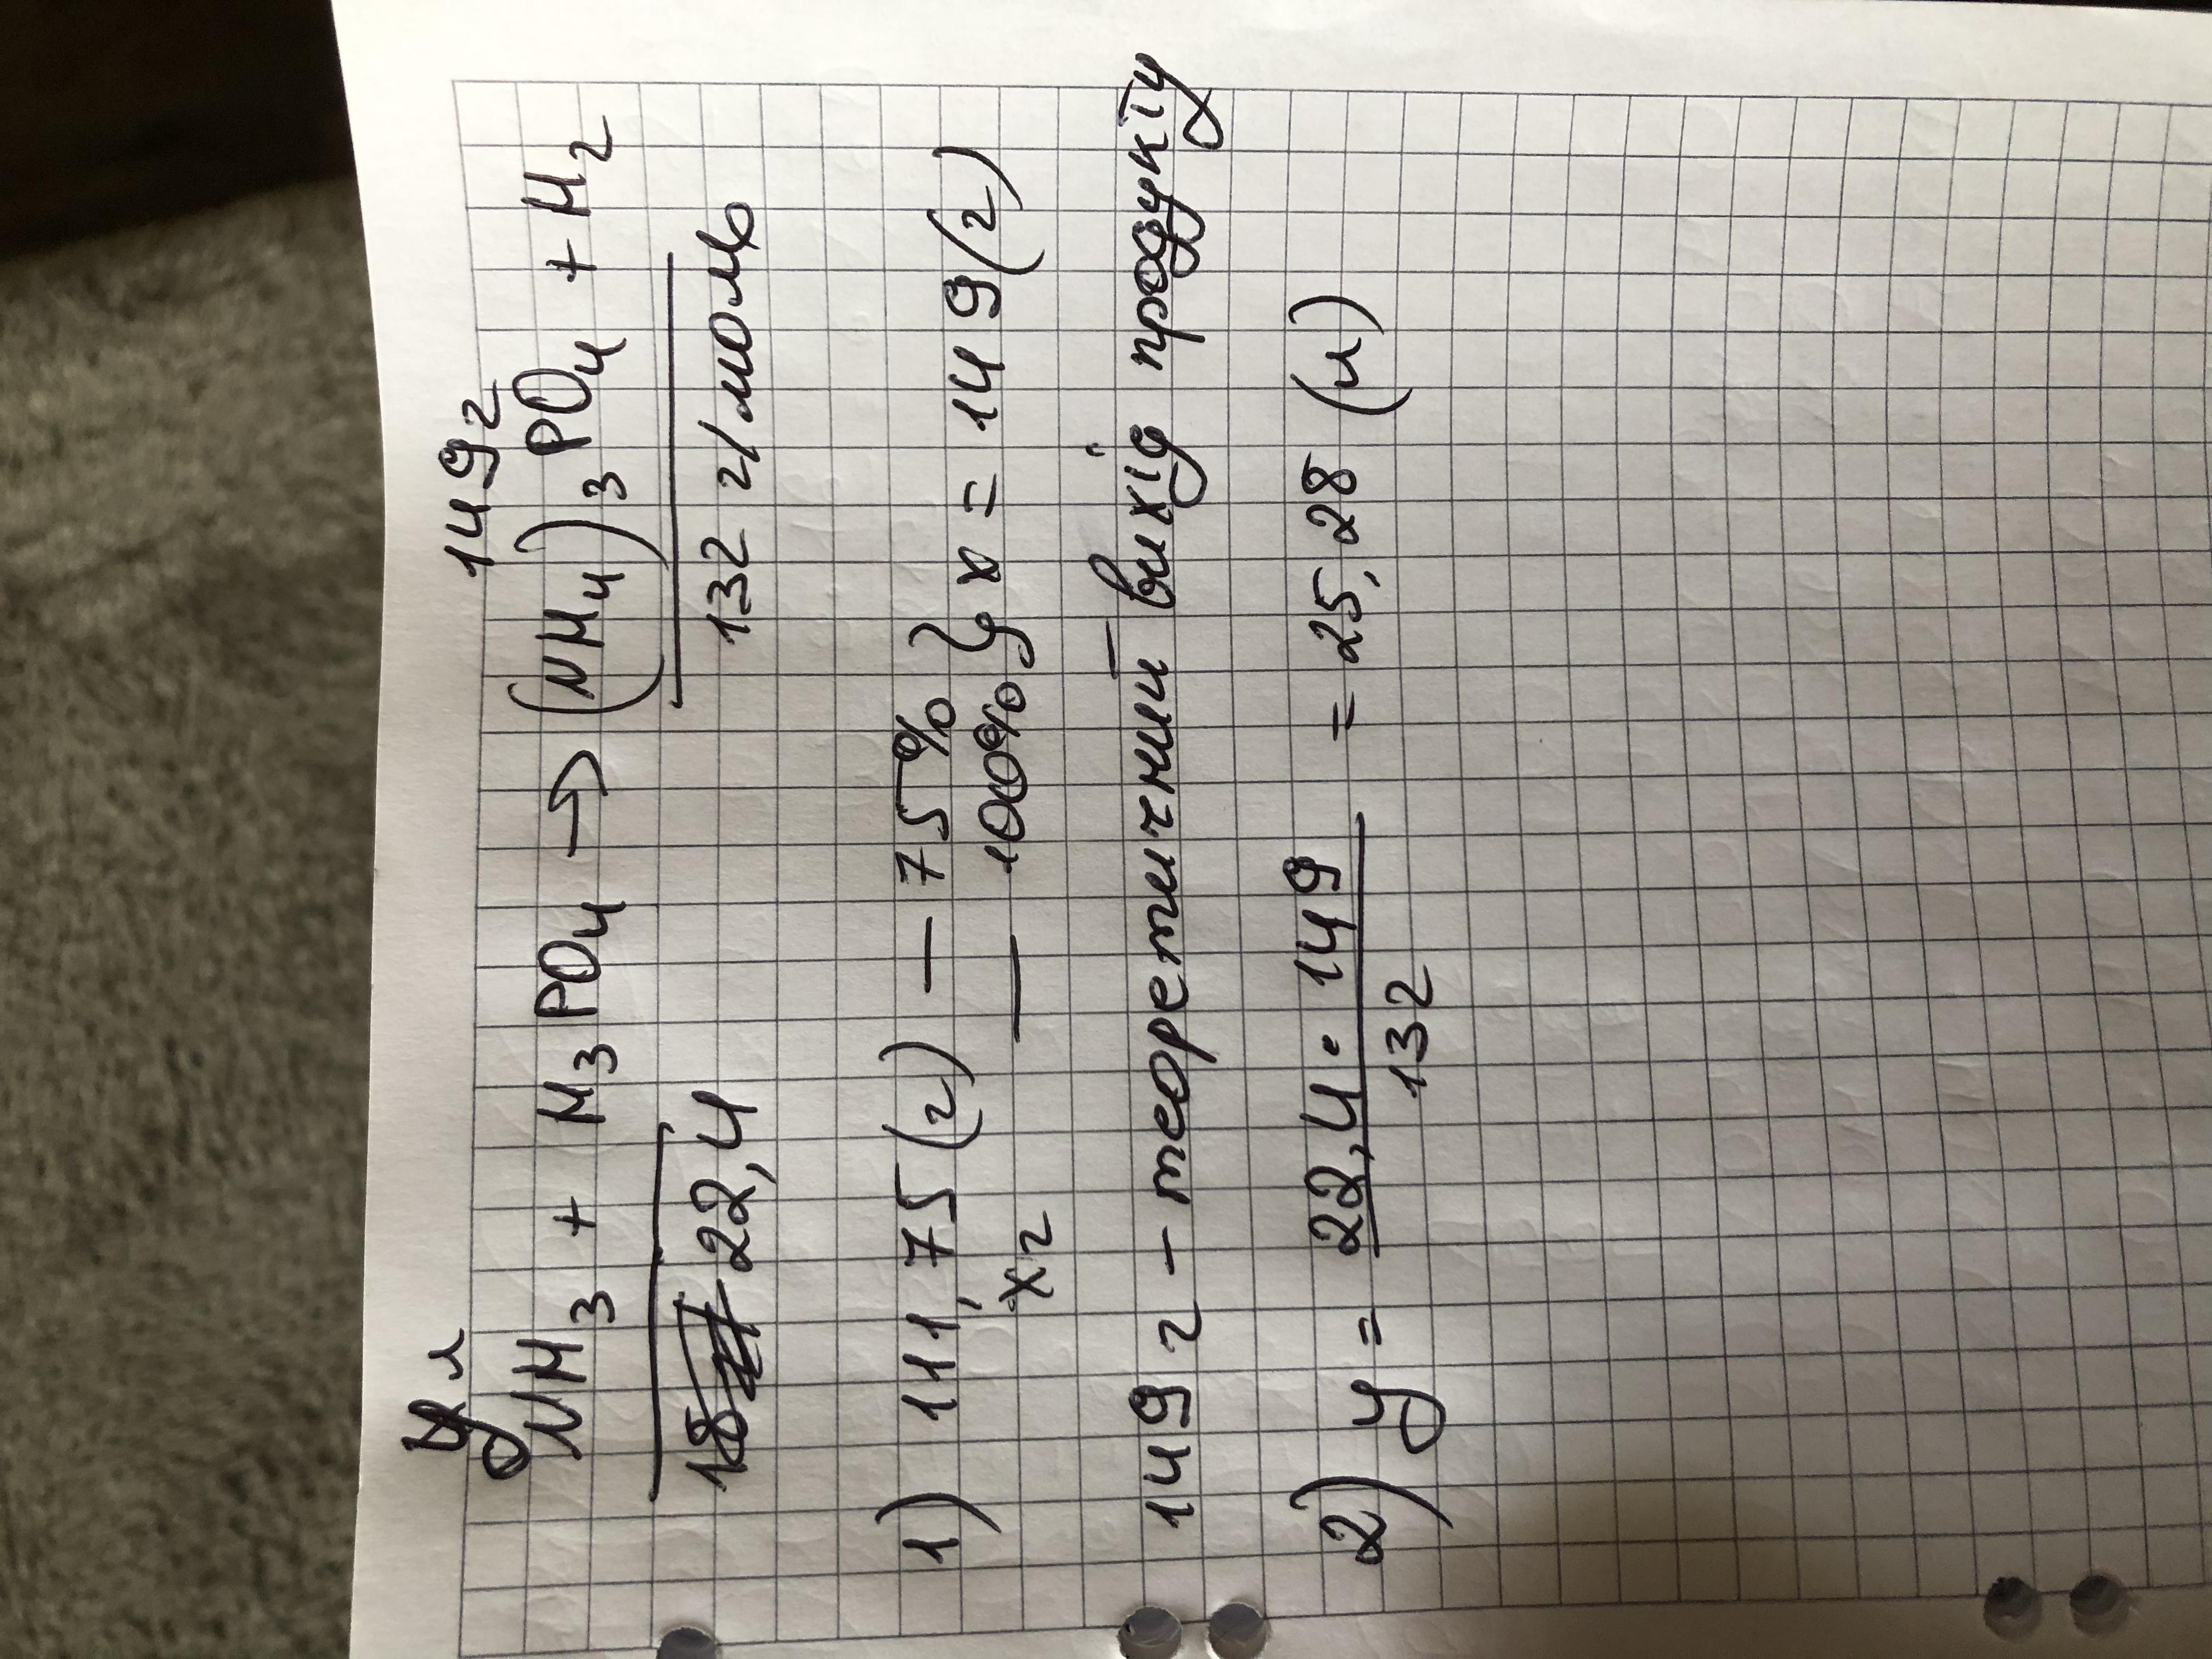 y л 149 г
NH3 + H3PO4 → (NH4)3PO4 + H2
22,4 132 г/моль
1) 111,75 (г) — 75% } x = 149 (г)
x г — 100%
149 г – теоретичний вихід продукту
2) y = 22,4 · 149 / 132 = 25,28 (л)